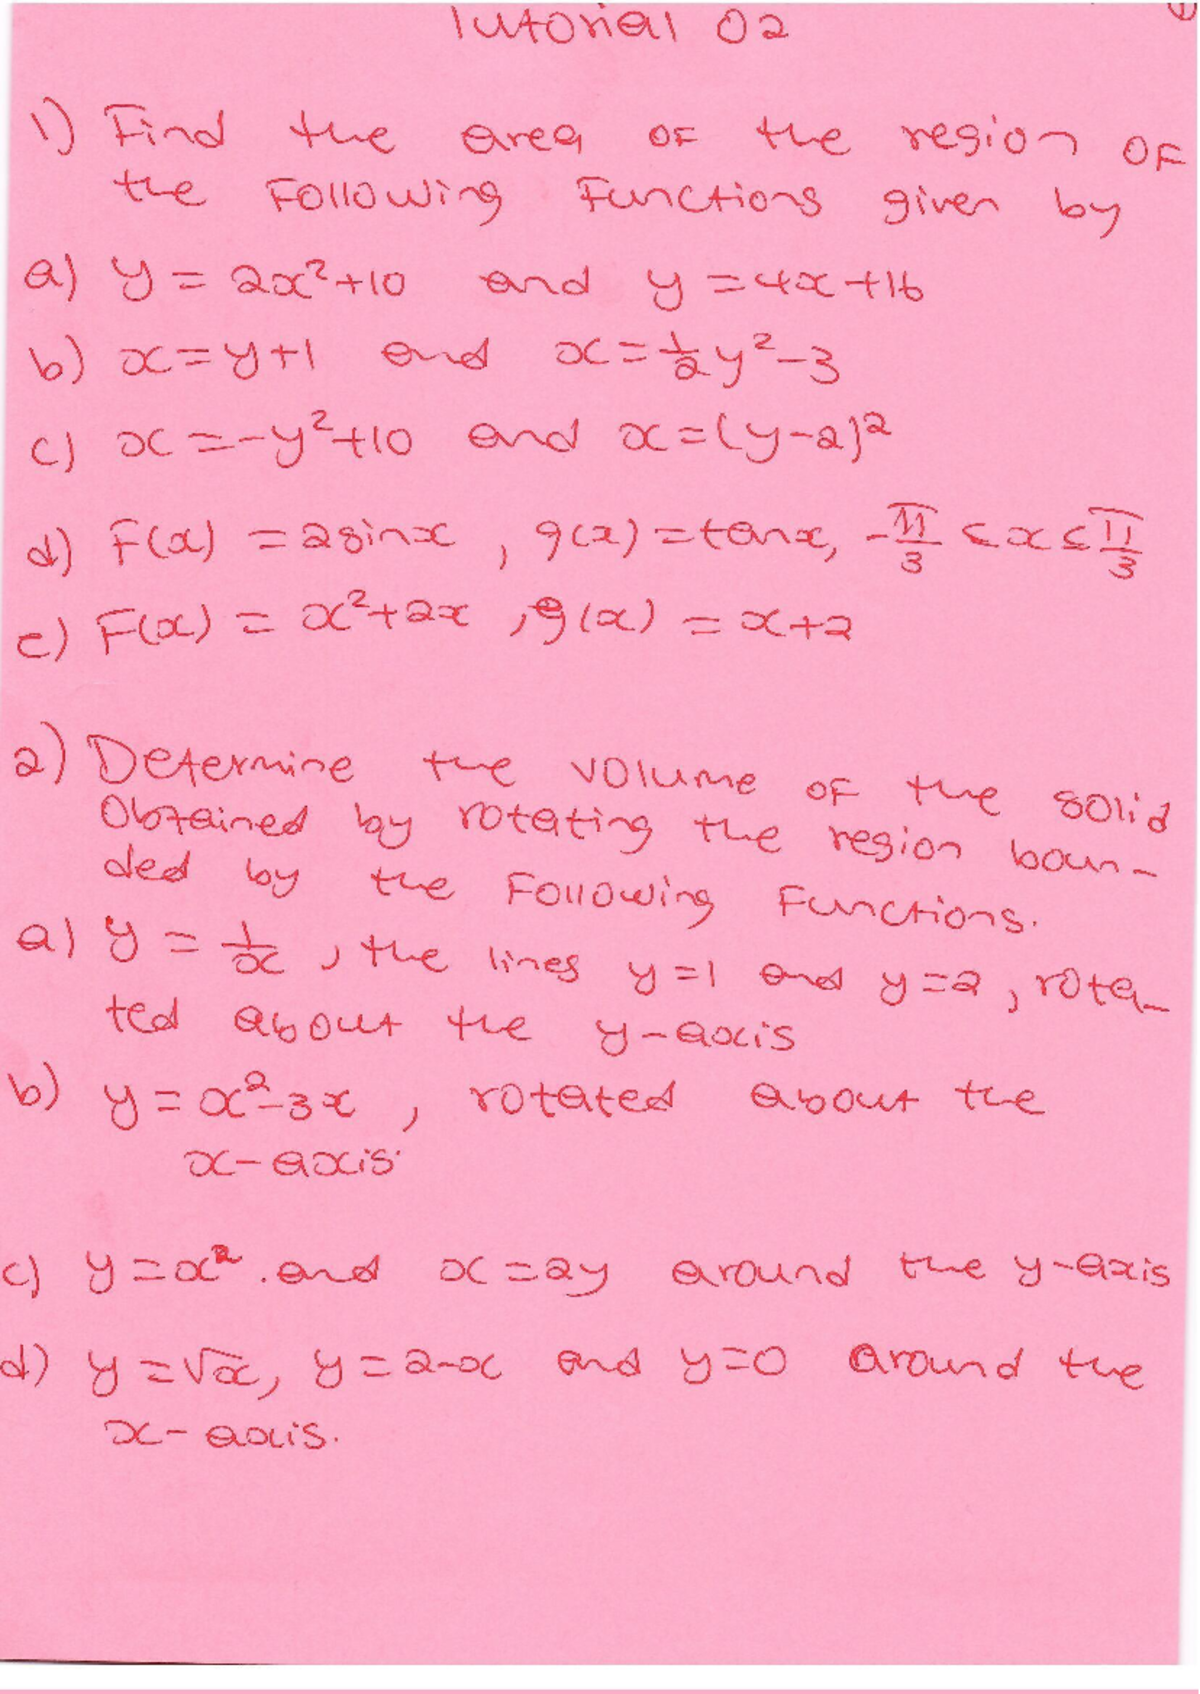 Tutorial 02
1) Find the area of the region of
the following functions given by
a) y = 2x²+10 and y = 4x+16
b) x = y+1 and x = ½y²-3
c) x = -y²+10 and x = (y-2)²
d) F(x) = 2sinx, g(x) = tanx, -π/3 ≤ x ≤ π/3
e) F(x) = x²+2x, g(x) = x+2
2) Determine the volume of the solid
Obtained by rotating the region boun-
ded by the following functions.
a) y = 1/x, the lines y=1 and y=2, rota-
ted about the y-axis
b) y = x²-3x, rotated about the
x-axis.
c) y = x². and x = 2y around the y-axis
d) y = √x, y = 2-x and y=0 around the
x-axis.